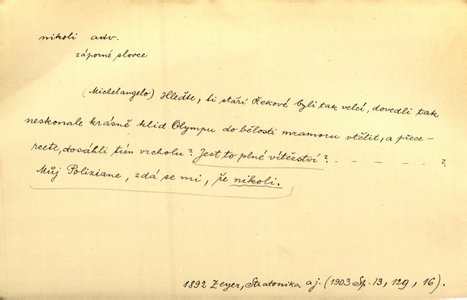 nikoli adv.
záporné slovce
(Michelangelo) Hleďte, ti staří Řekové byli tak velcí, dovedli tak
neskonale krásně klid Olympu do bělosti mramoru vtělit, a přece -
rcete, dosáhli tím vrcholu? Jest to plné vítězství? - - - - - ?
Můj Poliziane, zdá se mi, že nikoli.
1892 Zeyer, Stratonika aj. (1903 Sp. 13, 129, 16).